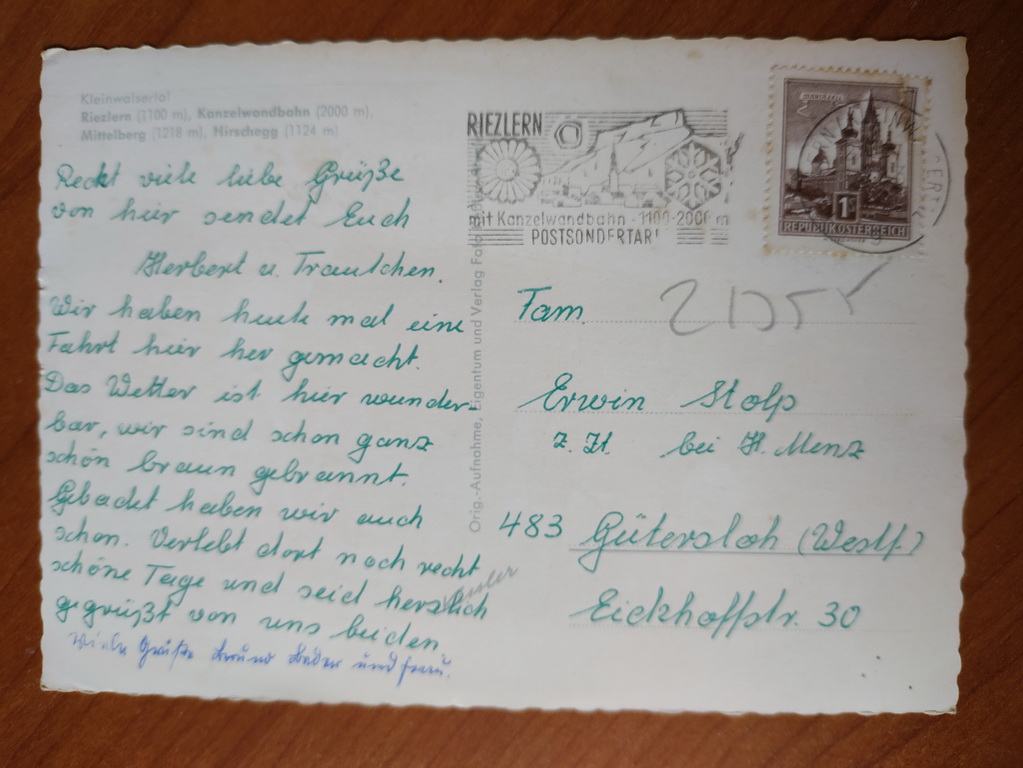 Kleinwalsertal
Riezlern (1100 m), Kanzelwandbahn (2000 m),
Mittelberg (1218 m), Hirschegg (1124 m)
Recht viele liebe Grüße
von hier sendet Euch
Herbert u. Trautchen.
Wir haben heute mal eine
Fahrt hier her gemacht.
Das Wetter ist hier wunder-
bar, wir sind schon ganz
schön braun gebrannt.
Gebadet haben wir auch
schon. Verlebt dort noch recht
schöne Tage und seid herzlich
gegrüßt von uns beiden
Viele Grüße Bruno und Frau.
Orig.-Aufnahme, Eigentum und Verlag
RIEZLERN
mit Kanzelwandbahn - 1100-2000 m
POSTSONDERTARIF
1
REPUBLIK ÖSTERREICH
Fam.
Erwin Stolp
z. Zt. bei H. Menz
483 Gütersloh (Westf.)
Eickhoffstr. 30